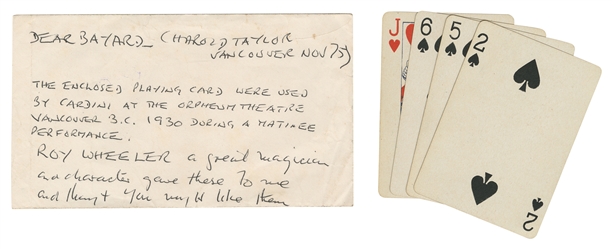 DEAR BAYARD_ (HAROLD TAYLOR
VANCOUVER NOV 75)
THE ENCLOSED PLAYING CARD WERE USED
BY CARDINI AT THE ORPHEUM THEATRE
VANCOUVER B.C. 1930 DURING A MATINEE
PERFORMANCE.
ROY WHEELER a great magician
and character gave these to me
and thought you might like them
J
6
5
2
2